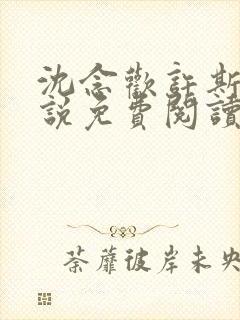 沈念歡許斯
說免費閱讀
荼蘼彼岸未央